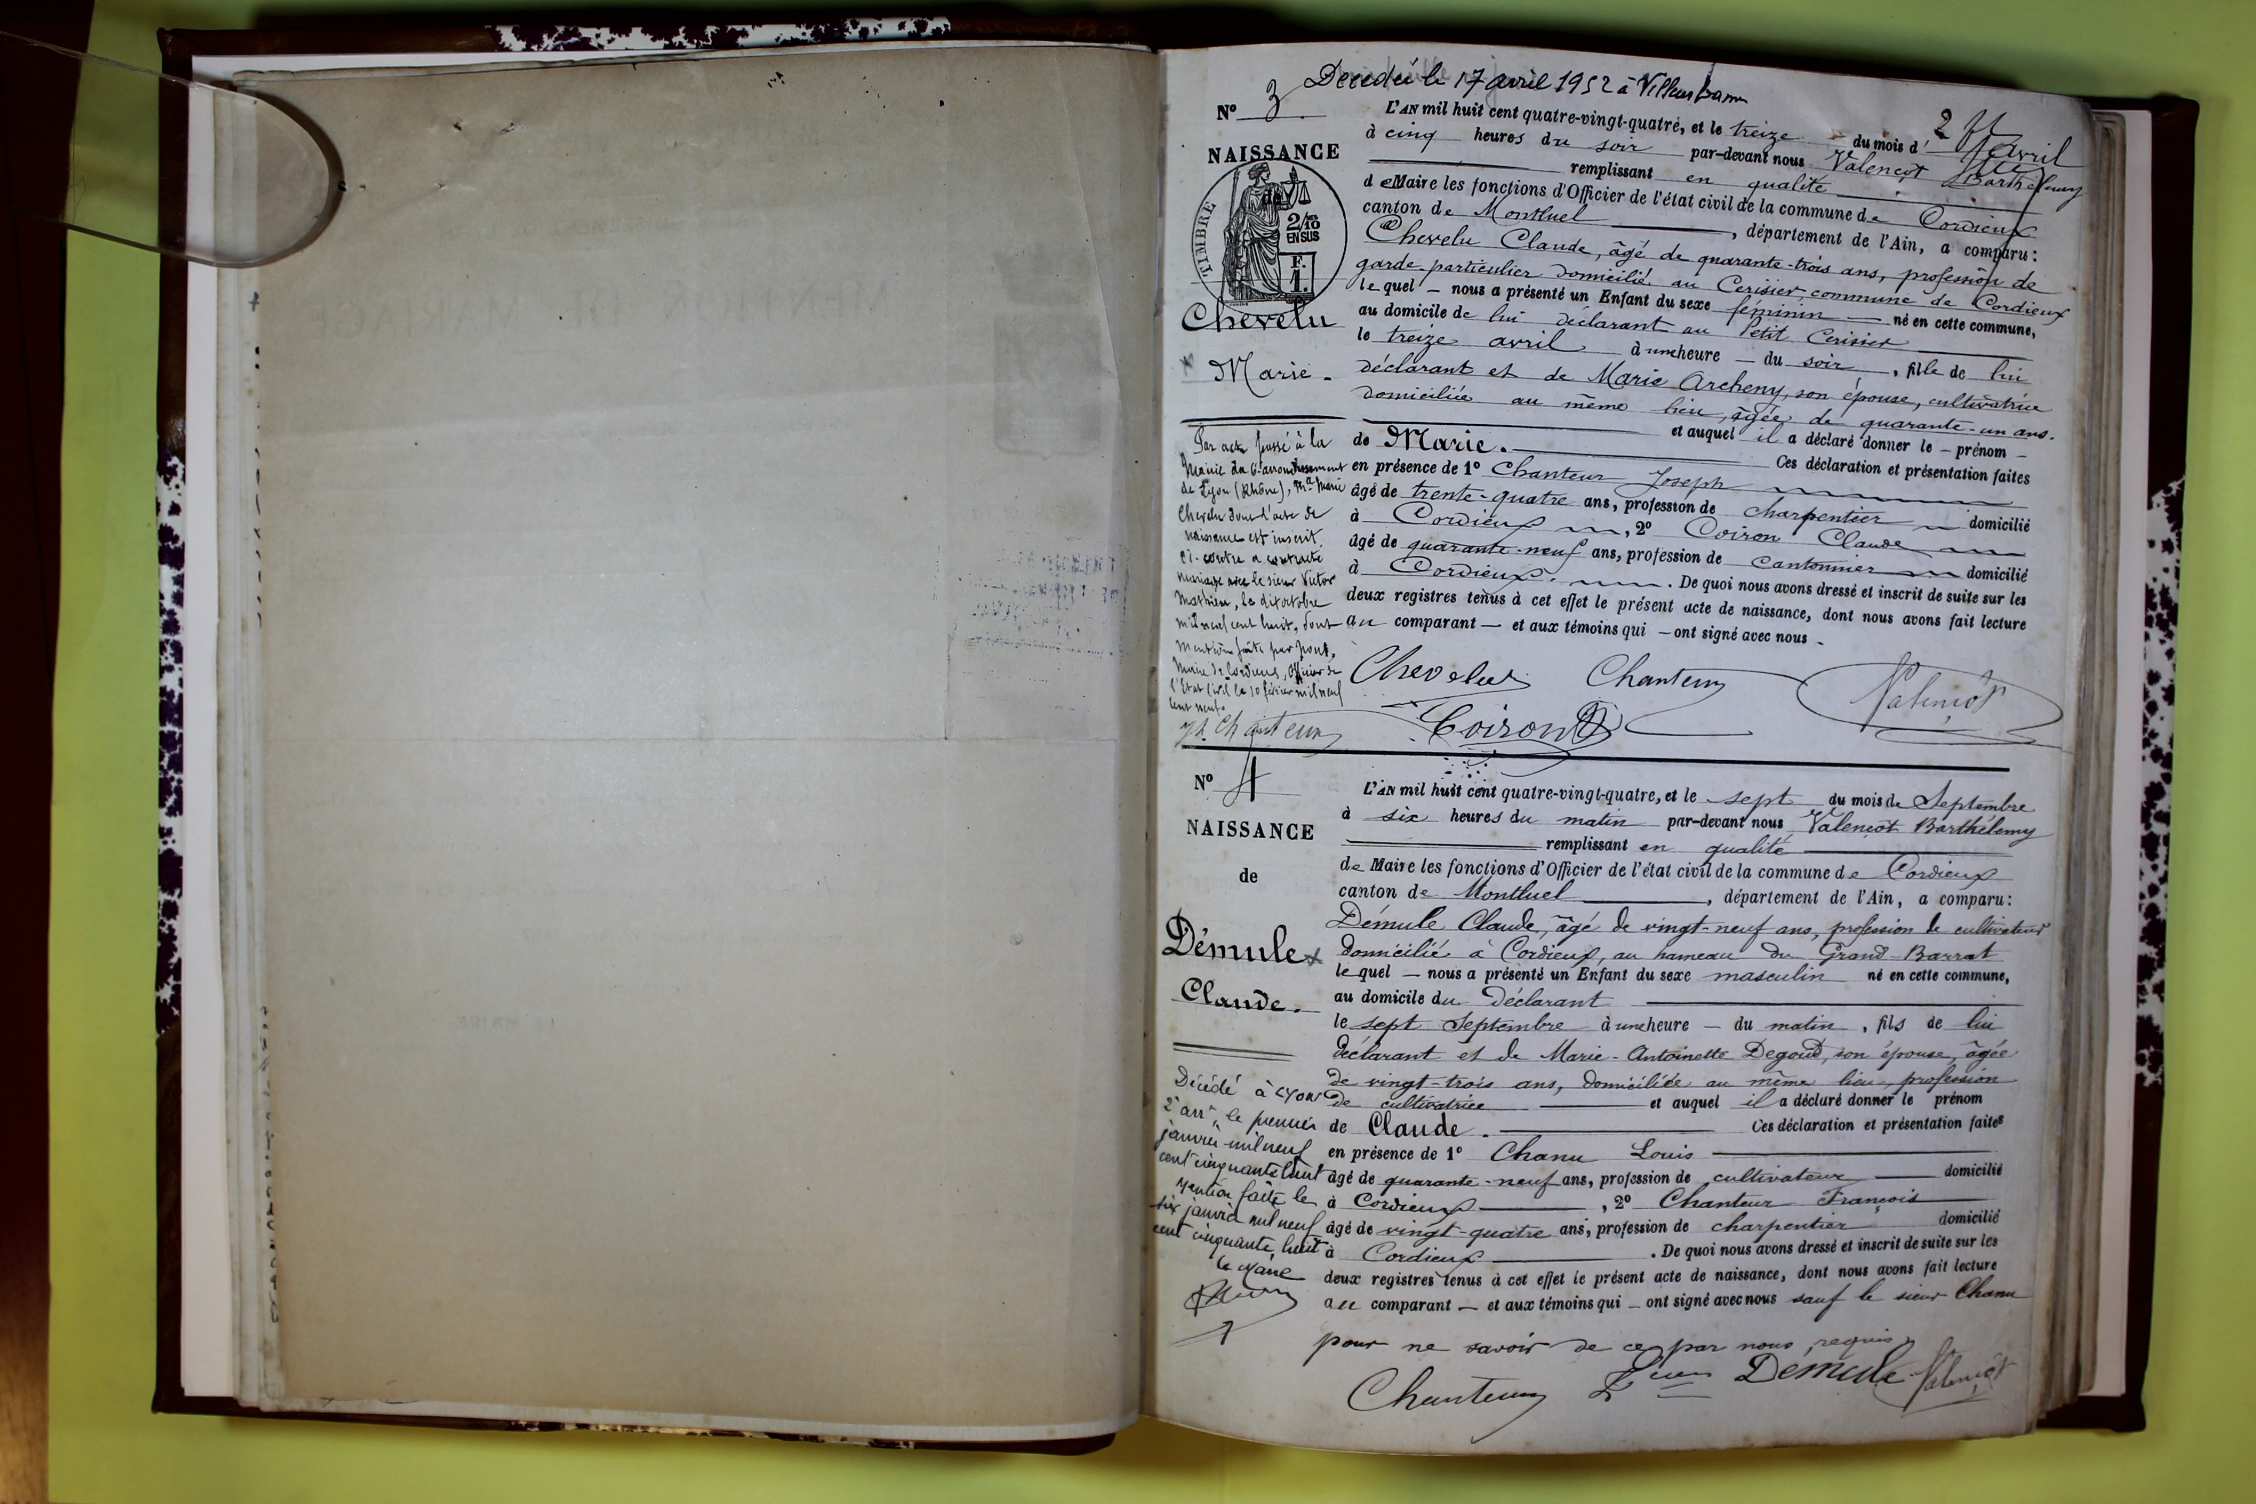 Decedée le 17 avril 1952 à Villeurbanne
N° 3
2 ff
L'AN mil huit cent quatre-vingt-quatre, et le treize du mois d'avril
à cinq heures du soir par-devant nous Valençot Barthélemy
NAISSANCE
remplissant en qualité
de Maire les fonctions d'Officier de l'état civil de la commune de Cordieux
canton de Montluel, département de l'Ain, a comparu:
TIMBRE
2/10 EN SUS
F. 1.
Chevelu Claude, âgé de quarante-trois ans, profession de
garde-particulier domicilié au Cerisier commune de Cordieux
lequel — nous a présenté un Enfant du sexe féminin — né en cette commune,
Chevelu
au domicile de lui déclarant au Petit Cerisier
le treize avril à une heure — du soir, fille de lui
Marie.
déclarant et de Marie Archeny, son épouse, cultivatrice
domiciliée au même lieu, âgée de quarante-un ans.
et auquel il a déclaré donner le — prénom —
de Marie. Ces déclaration et présentation faites
en présence de 1° Chanteur Joseph
âgé de trente-quatre ans, profession de charpentier domicilié
à Cordieux, 2° Coiron Claude
âgé de quarante-neuf ans, profession de cantonnier domicilié
à Cordieux. De quoi nous avons dressé et inscrit de suite sur les
deux registres tenus à cet effet le présent acte de naissance, dont nous avons fait lecture
au comparant — et aux témoins qui — ont signé avec nous —
Par acte passé à la
Mairie du 6e arrondissement
de Lyon (Rhône), Mlle Marie
Chevelu dont l'acte de
naissance est inscrit
ci-contre a contracté
mariage avec le sieur Victor
Mathieu, le dix octobre
mil neuf cent huit, dont
mention faite par nous,
Maire de Cordieux, Officier de
l'Etat Civil le 10 février mil neuf
cent neuf.
Jh Chanteur
Chevelu Chanteur Valençot
Coiron
N° 4
L'AN mil huit cent quatre-vingt-quatre, et le sept du mois de Septembre
à six heures du matin par-devant nous Valençot Barthélemy
NAISSANCE
remplissant en qualité
de Maire les fonctions d'Officier de l'état civil de la commune de Cordieux
de
canton de Montluel, département de l'Ain, a comparu:
Démule Claude, âgé de vingt-neuf ans, profession de cultivateur
Démule
domicilié à Cordieux, au hameau du Grand-Barrat
lequel — nous a présenté un Enfant du sexe masculin né en cette commune,
Claude.
au domicile du déclarant
le sept Septembre à une heure — du matin, fils de lui
déclarant et de Marie-Antoinette Degoud, son épouse, âgée
de vingt-trois ans, domiciliée au même lieu, profession
de cultivatrice et auquel il a déclaré donner le prénom
de Claude. Ces déclaration et présentation faites
en présence de 1° Chanu Louis
âgé de quarante-neuf ans, profession de cultivateur domicilié
à Cordieux, 2° Chanteur François
âgé de vingt-quatre ans, profession de charpentier domicilié
à Cordieux. De quoi nous avons dressé et inscrit de suite sur les
deux registres tenus à cet effet le présent acte de naissance, dont nous avons fait lecture
au comparant — et aux témoins qui — ont signé avec nous sauf le sieur Chanu
pour ne savoir de ce par nous requis
Décédé à Lyon
2e arrt le premier
janvier mil neuf
cent cinquante huit
Mention faite le
six janvier mil neuf
cent cinquante huit
Le Maire
Chanteur Démule Valençot